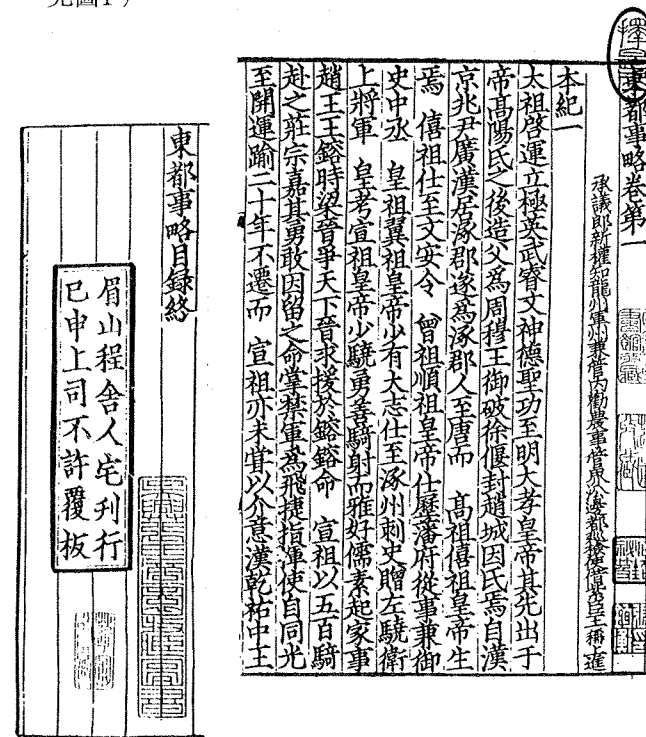 見圖1）
東都事略卷第一
承議郎新權知龍州軍州兼管內勸農事管界沿邊都巡檢使借紫臣王稱上進
本紀一
太祖啓運立極英武睿文神德聖功至明大孝皇帝其先出于
帝髙陽氏之後造父爲周穆王御破徐偃封趙城因氏焉自漢
京兆尹廣漢居涿郡遂爲涿郡人至唐而　髙祖僖祖皇帝生
焉　僖祖仕至文安令　曾祖順祖皇帝仕歷藩府從事兼御
史中丞　皇祖翼祖皇帝少有大志仕至涿州刺史贈左驍衛
上將軍　皇考宣祖皇帝少驍勇善騎射而雅好儒素起家事
趙王王鎔時梁晉爭天下晉求援於鎔鎔命　宣祖以五百騎
赴之莊宗嘉其勇敢因留之命掌禁軍爲飛捷指揮使自同光
至開運踰二十年不遷而　宣祖亦未甞以介意漢乾祐中王
東都事略目録終
眉山程舍人宅刊行
已申上司不許覆板